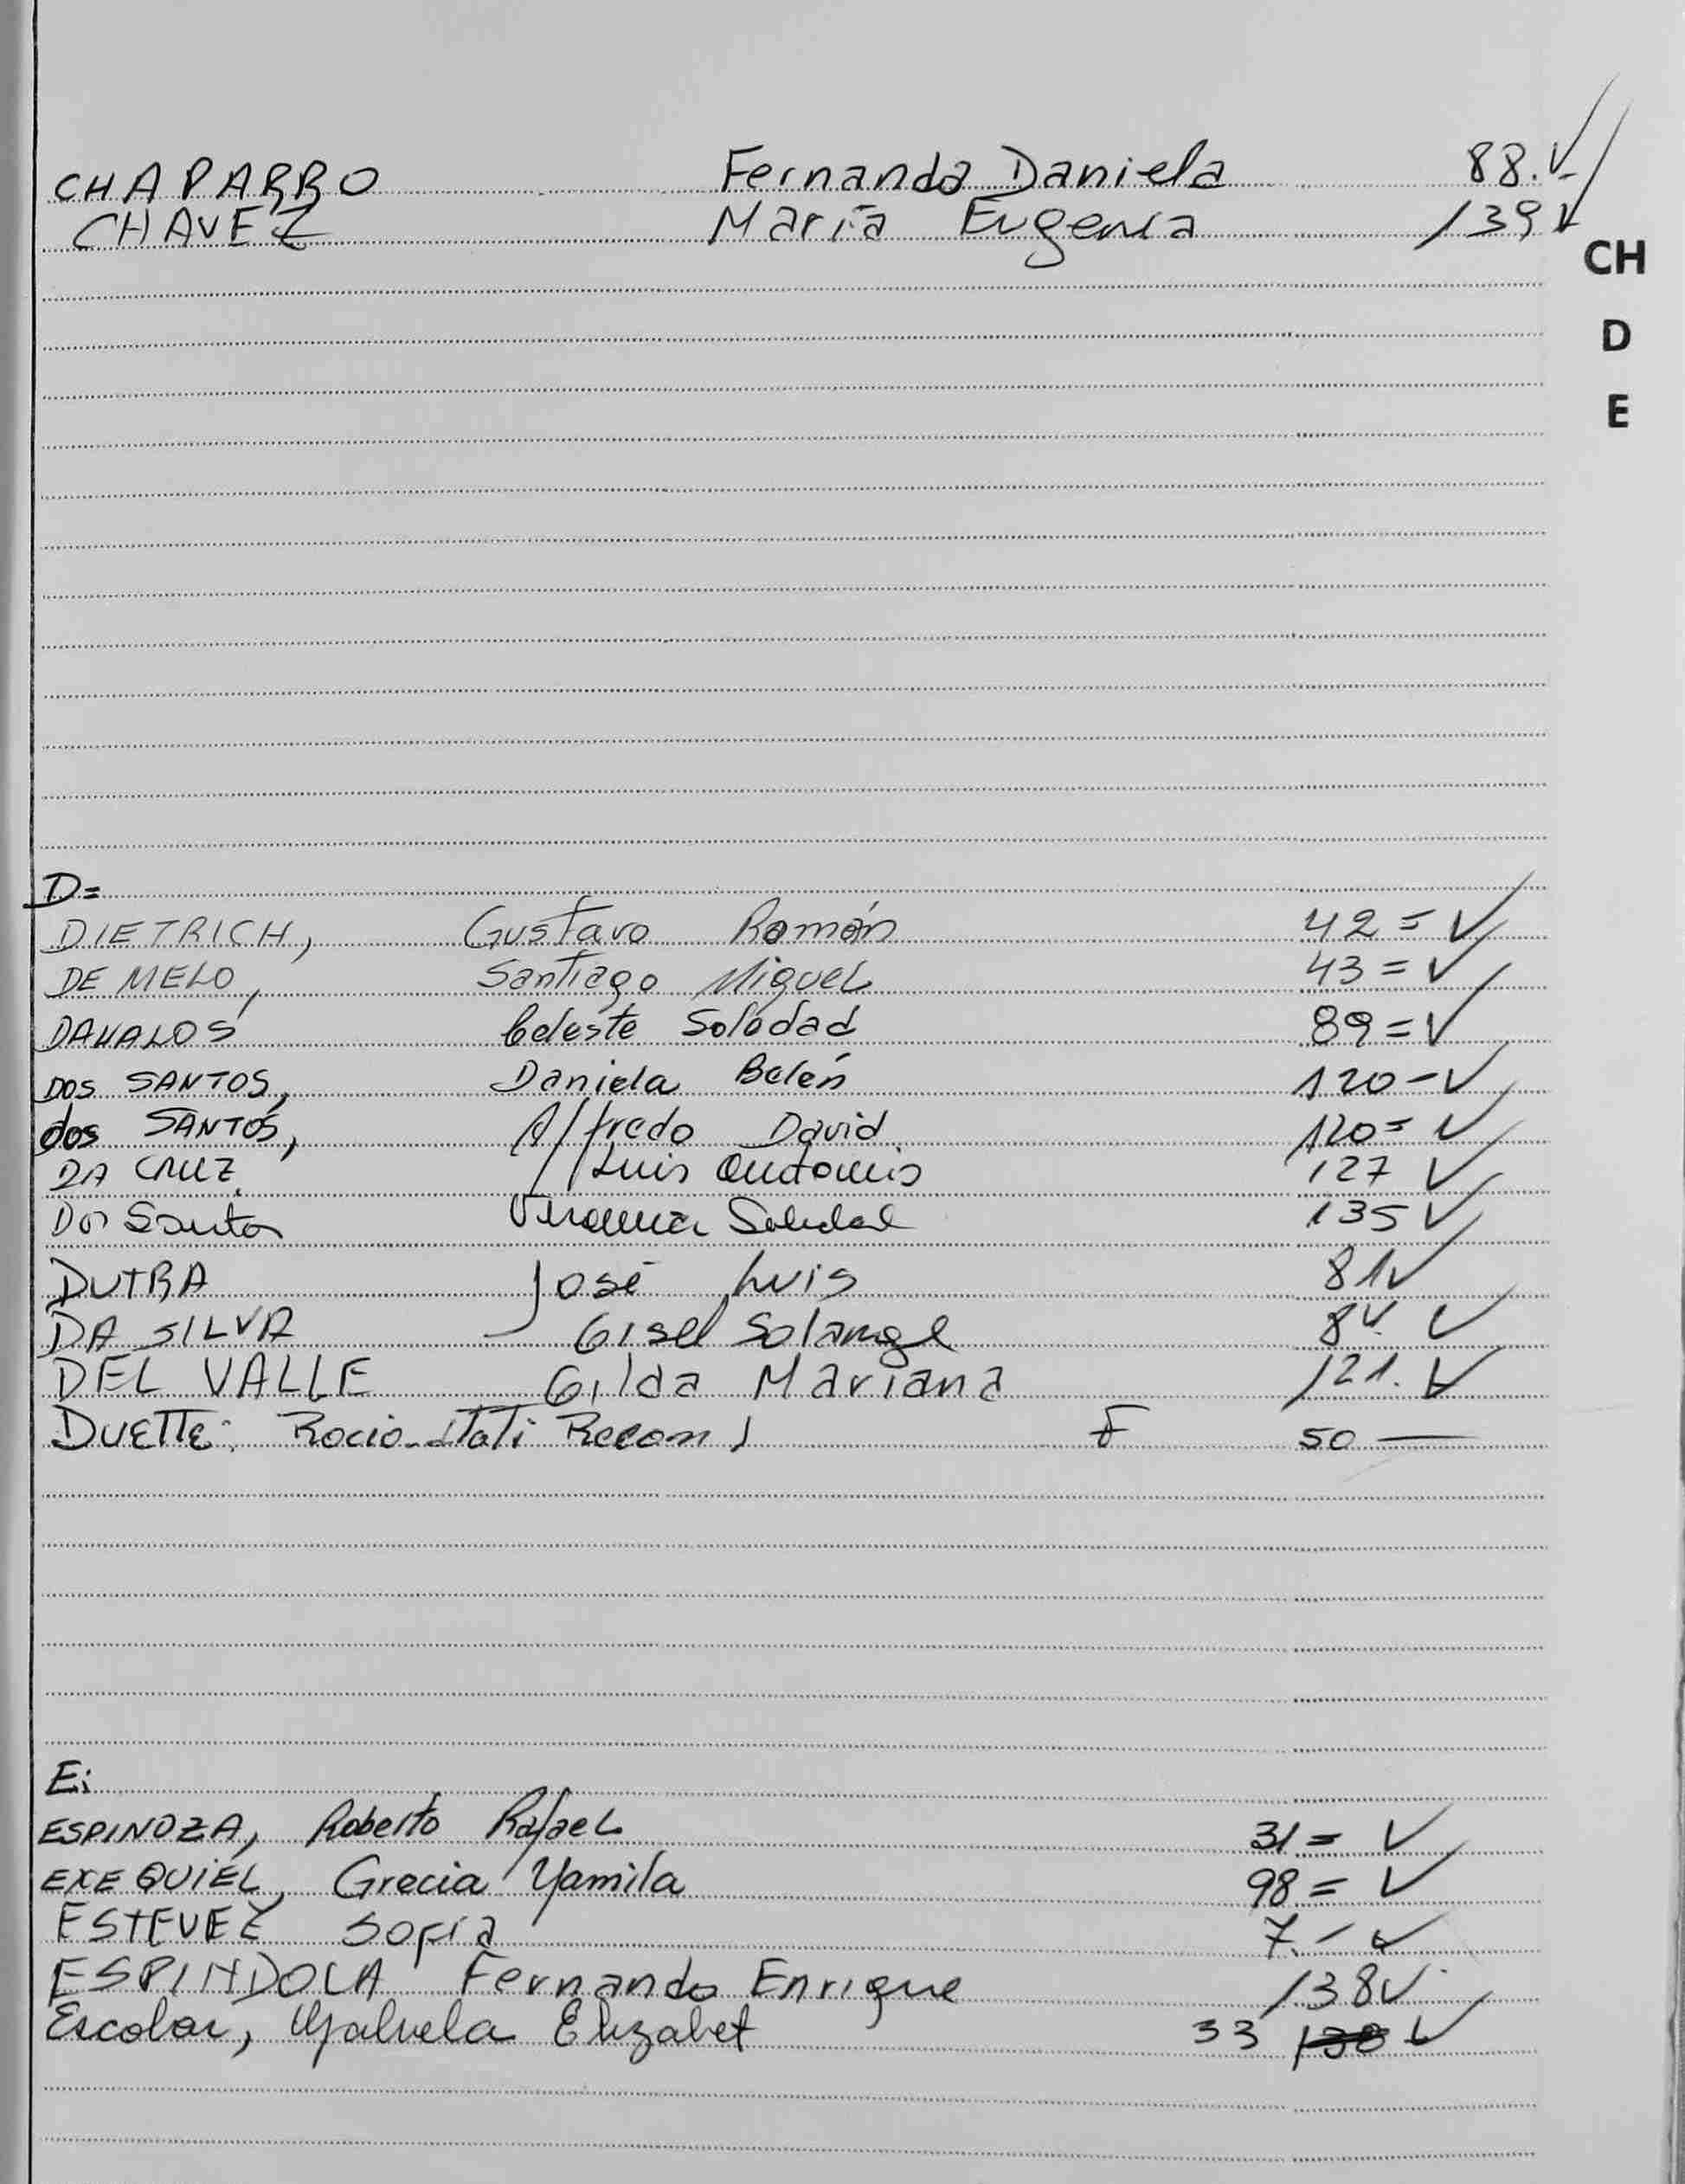 CHAPARRO Fernanda Daniela 88.✓
CHAVEZ María Eugenia 139✓
CH
D
E
D=
DIETRICH, Gustavo Román 42=✓
DE MELO, Santiago Miguel 43=✓
DAVALOS Celeste Soledad 89=✓
DOS SANTOS, Daniela Belén 120-✓
dos SANTOS, Alfredo David 120=✓
DA CRUZ. Luis Antonio 127 ✓
Dos Santos Veronica Soledad 135✓
DUTRA José Luis 81✓
DA SILVA Gisel Solange ✓
DEL VALLE Gilda Mariana 121.✓
DUETTE: Rocio Itati F 50 —
E:
ESPINOZA, Roberto Rafael 31=✓
EXEQUIEL, Grecia Yamila 98=✓
ESTEVEZ Sofía 7.-✓
ESPINDOLA Fernando Enrique 138✓
Escobar, Elizabet 33 138 ✓